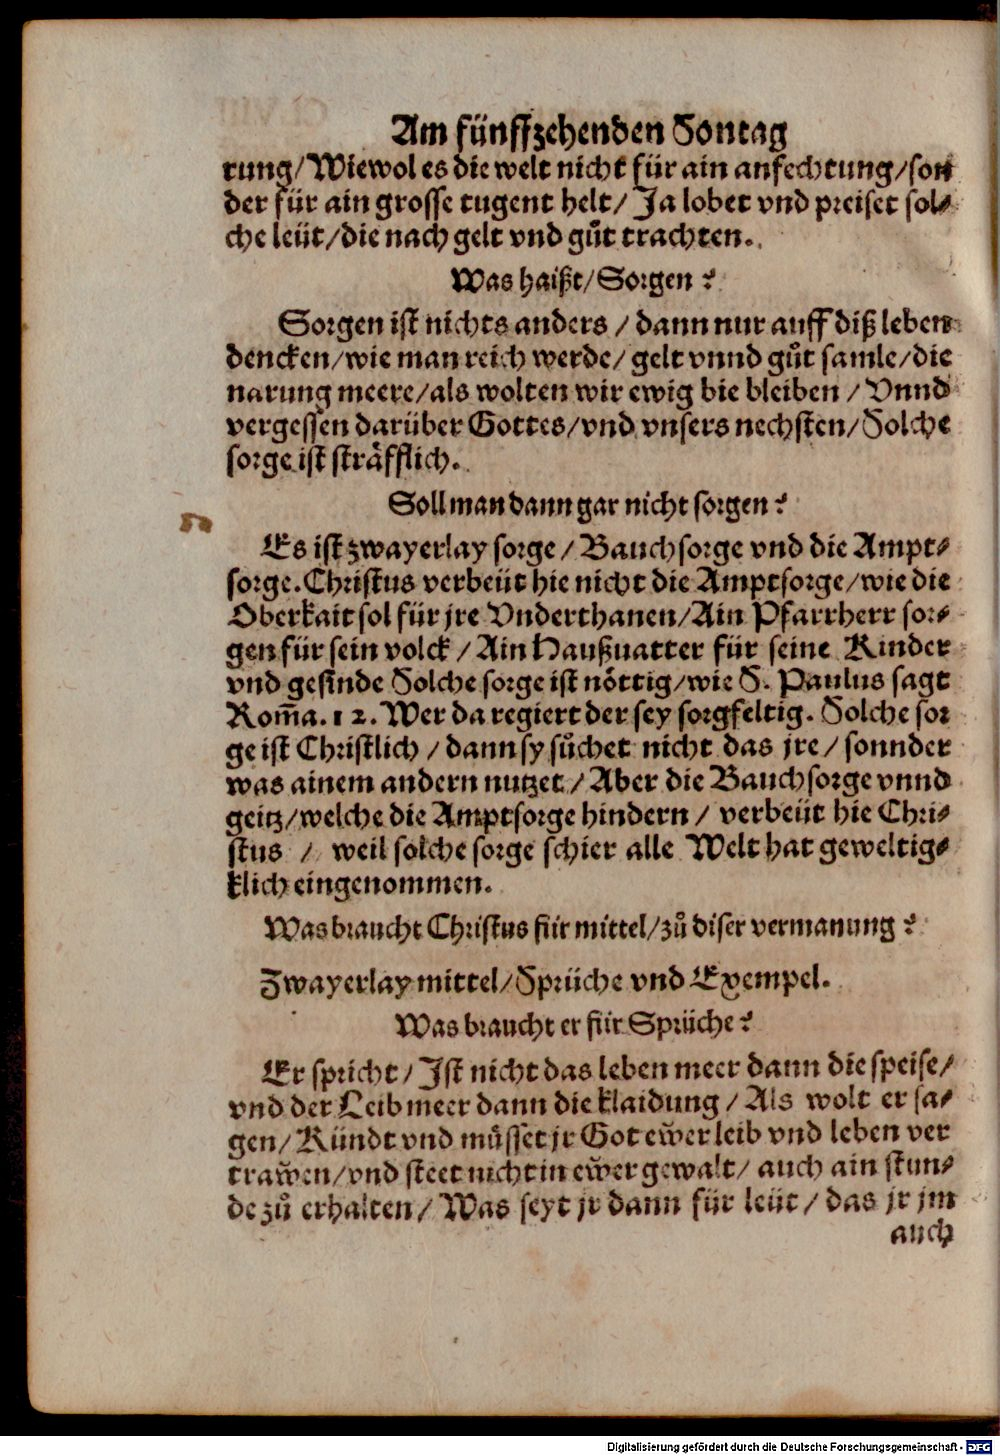 Am fünffzehenden Sontag
rung/Wiewol es die welt nicht für ain anfechtung/son
der für ain grosse tugent helt/ Ja lobet vnd preiset sol⸗
che leüt/die nach gelt vnd gůt trachten.
Was haißt/Sorgen?
Sorgen ist nichts anders / dann nur auff diß leben
dencken/wie man reich werde/ gelt vnnd gůt samle/die
narung meere/als wolten wir ewig hie bleiben / Vnnd
vergessen darüber Gottes/vnd vnsers nechsten/Solche
sorge ist sträfflich.
Soll man dann gar nicht sorgen?
Es ist zwayerlay sorge / Bauchsorge vnd die Ampt⸗
sorge. Christus verbeüt hie nicht die Amptsorge/wie die
Oberkait sol für jre Vnderthanen/Ain Pfarrherr sor⸗
gen für sein volck / Ain Haußuatter für seine Kinder
vnd gesinde Solche sorge ist nöttig/wie S. Paulus sagt
Rom̄a. 12. Wer da regiert der sey sorgfeltig. Solche sor
ge ist Christlich / dann sy sůchet nicht das jre/ sonnder
was ainem andern nutzet / Aber die Bauchsorge vnnd
geitz/welche die Amptsorge hindern / verbeüt hie Chri⸗
stus / weil solche sorge schier alle Welt hat geweltig⸗
klich eingenommen.
Was braucht Christus für mittel/zů diser vermanung?
Zwayerlay mittel/Sprüche vnd Exempel.
Was braucht er für Sprüche?
Er spricht / Ist nicht das leben meer dann die speise/
vnd der Leib meer dann die klaidung / Als wolt er sa⸗
gen/ Kündt vnd müsset jr Got ew̌er leib vnd leben ver
traw̌en/vnd steet nicht in ew̌er gewalt/ auch ain stun⸗
de zů erhalten/ Was seyt jr dann für leüt/ das jr jm
auch
Digitalisierung gefördert durch die Deutsche Forschungsgemeinschaft - DFG